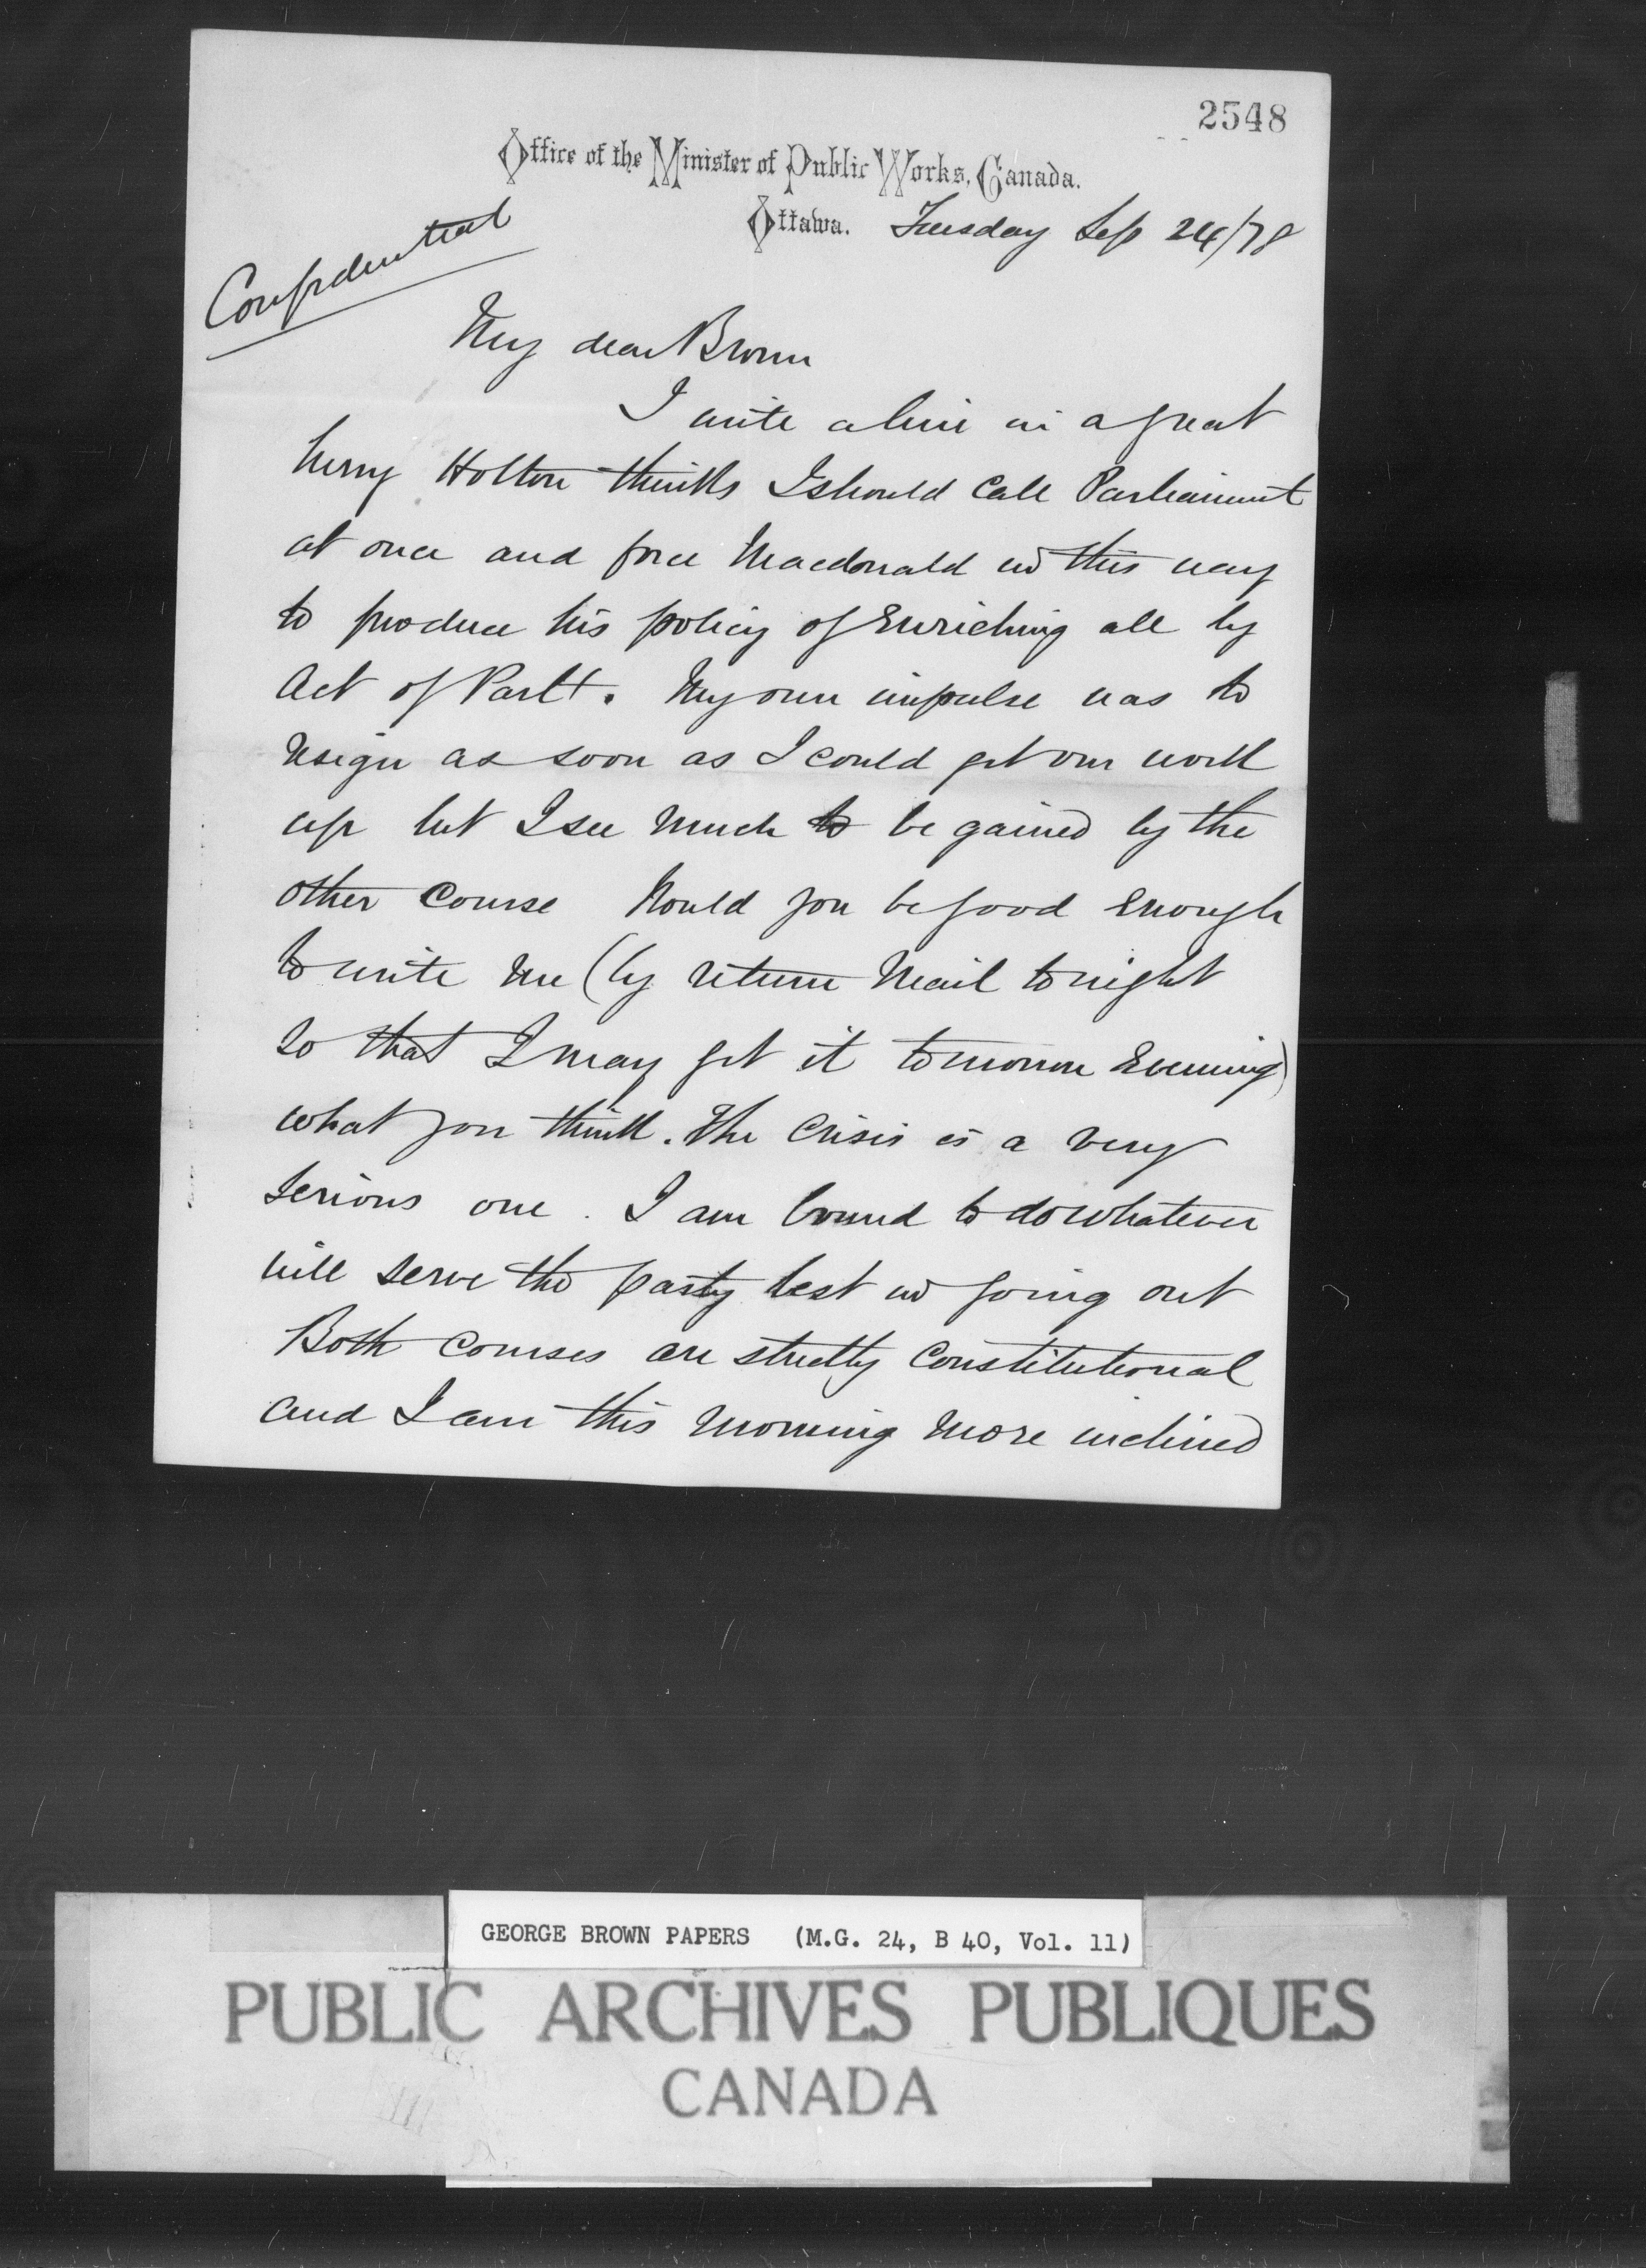 2548
Office of the Minister of Public Works, Canada.
Ottawa. Tuesday Sep 24/78
Confidential
My dear Brown
I write a line in a great
hurry Holton thinks I should call Parliament
at once and force Macdonald in this way
to produce his policy of Enriching all by
Act of Parlt. My own impulse was to
resign as soon as I could get our work
up but I see much to be gained by the
other course Would you be good enough
to write me (by return Mail tonight
so that I may get it tomorrow Evening)
what you think. The Crisis is a very
serious one. I am bound to do whatever
will serve the party best in going out
Both courses are strictly Constitutional
and I am this morning more inclined
GEORGE BROWN PAPERS (M.G. 24, B 40, Vol. 11)
PUBLIC ARCHIVES PUBLIQUES
CANADA